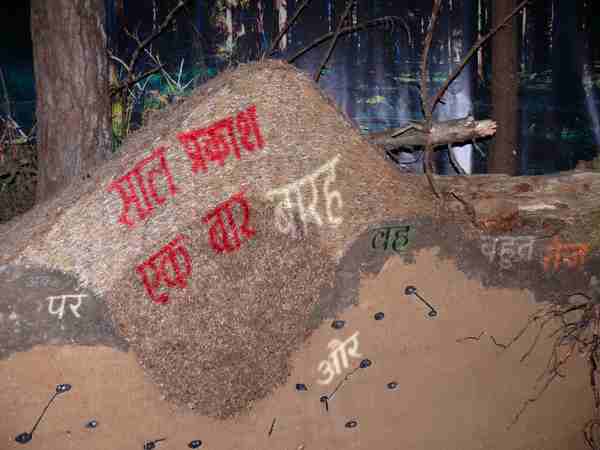 साल प्रकाश
एक बार बारह
वह बहुत तेज
पर
और